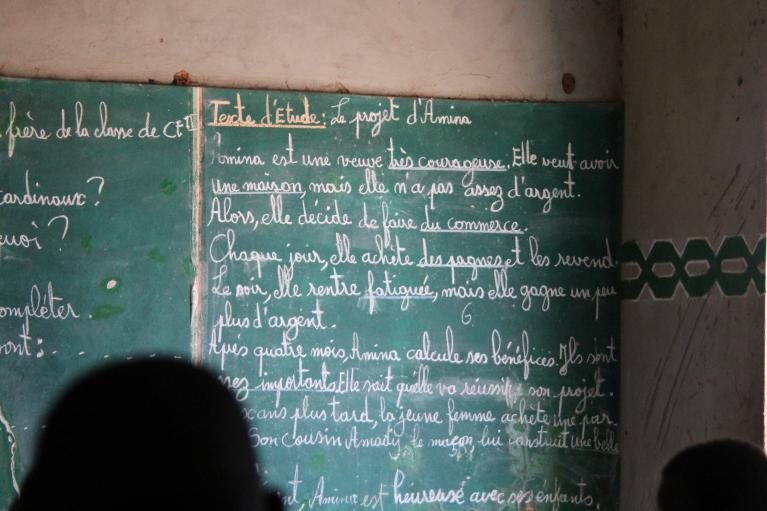 frère de la classe de CE II
cardinaux?
quoi?
ompléter.
ont:
Texte d'Etude: Le projet d'Amina
Amina est une veuve très courageuse. Elle veut avoir
une maison, mais elle n'a pas assez d'argent.
Alors, elle décide de faire du commerce.
Chaque jour, elle achète des pagnes et les revend.
Le soir, elle rentre fatiguée, mais elle gagne un peu
plus d'argent.
Après quatre mois, Amina calcule ses bénéfices. Ils sont
ssez importants. Elle sait qu'elle va réussir son projet.
ans plus tard, la jeune femme achète une par.
Son cousin Amadu, le maçon, lui construit une belle
nt, Amina est heureuse avec ses enfants.